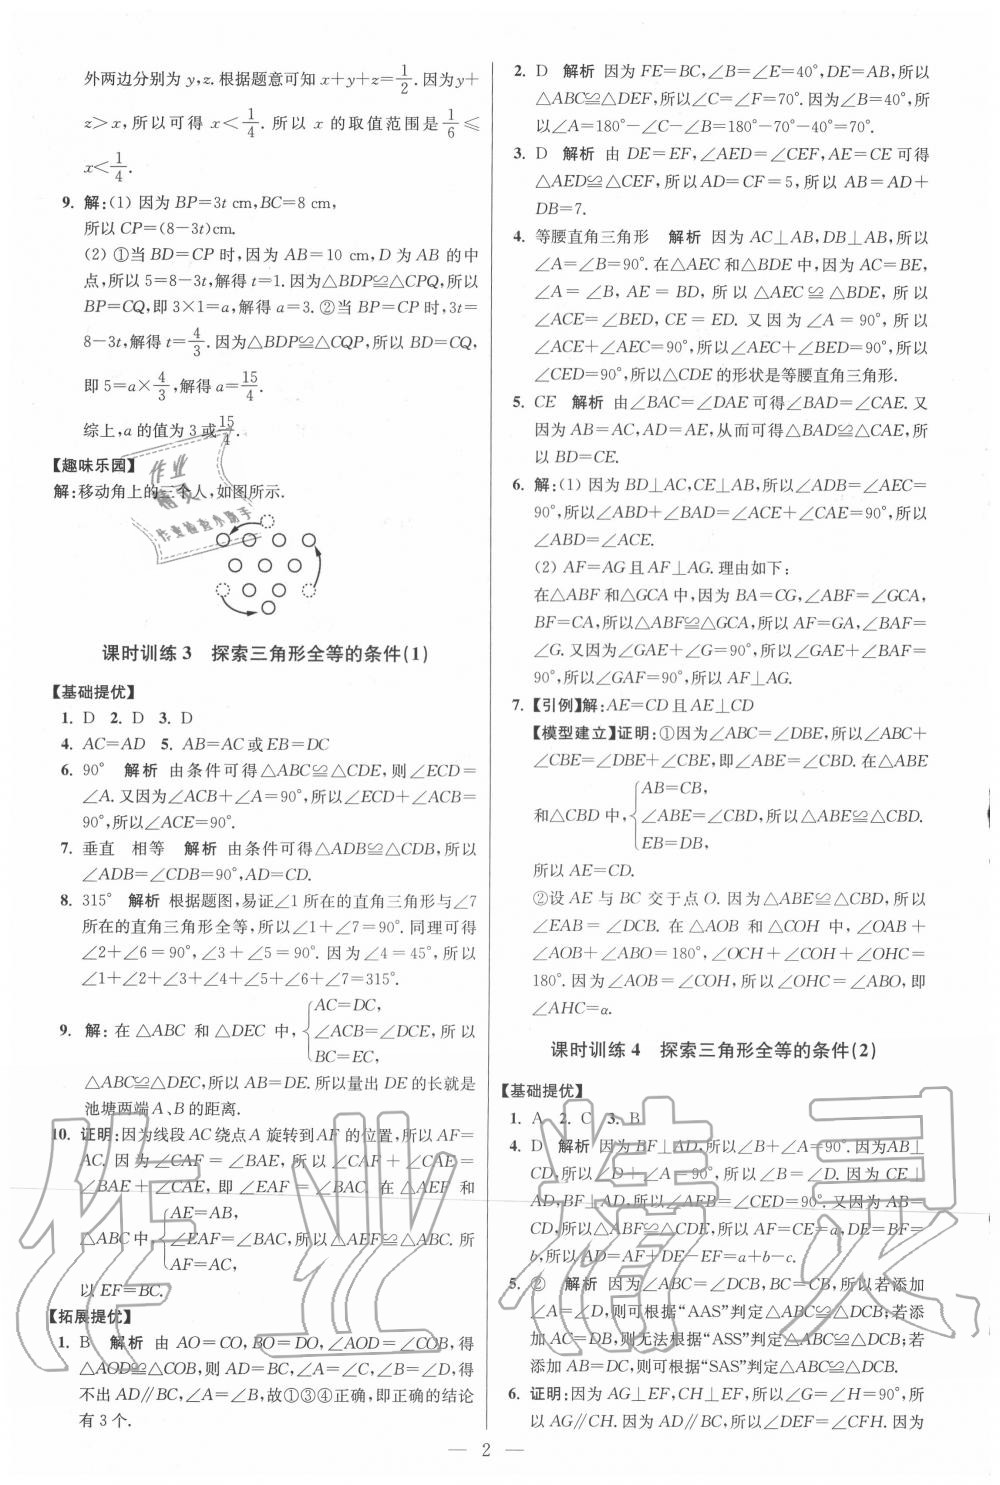 外两边分别为 y,z. 根据题意可知 x+y+z=1/2. 因为 y+
z>x,所以可得 x<1/4. 所以 x 的取值范围是 1/6≤
x<1/4.
9. 解:(1) 因为 BP=3t cm,BC=8 cm,
所以 CP=(8-3t)cm.
(2) ①当 BD=CP 时,因为 AB=10 cm,D 为 AB 的中
点,所以 5=8-3t,解得 t=1. 因为△BDP≌△CPQ,所以
BP=CQ,即 3×1=a,解得 a=3. ②当 BP=CP 时,3t=
8-3t,解得 t=4/3. 因为△BDP≌△CQP,所以 BD=CQ,
即 5=a×4/3,解得 a=15/4.
综上,a 的值为 3 或15/4.
【趣味乐园】
解:移动角上的三个人,如图所示.
课时训练 3 探索三角形全等的条件(1)
【基础提优】
1. D 2. D 3. D
4. AC=AD 5. AB=AC 或 EB=DC
6. 90° 解析 由条件可得△ABC≌△CDE,则∠ECD=
∠A. 又因为∠ACB+∠A=90°,所以∠ECD+∠ACB=
90°,所以∠ACE=90°.
7. 垂直 相等 解析 由条件可得△ADB≌△CDB,所以
∠ADB=∠CDB=90°,AD=CD.
8. 315° 解析 根据题图,易证∠1 所在的直角三角形与∠7
所在的直角三角形全等,所以∠1+∠7=90°. 同理可得
∠2+∠6=90°,∠3+∠5=90°. 因为∠4=45°,所以
∠1+∠2+∠3+∠4+∠5+∠6+∠7=315°.
AC=DC,
9. 解:在△ABC 和△DEC 中,∠ACB=∠DCE,所以
BC=EC,
△ABC≌△DEC,所以 AB=DE. 所以量出 DE 的长就是
池塘两端 A、B 的距离.
10. 证明:因为线段 AC 绕点 A 旋转到 AF 的位置,所以 AF=
AC. 因为∠CAF=∠BAE,所以∠CAF+∠CAE=
∠BAE+∠CAE,即∠EAF=∠BAC. 在△AEF 和
AE=AB,
△ABC 中,∠EAF=∠BAC,所以△AEF≌△ABC. 所
AF=AC,
以 EF=BC.
【拓展提优】
1. B 解析 由 AO=CO,BO=DO,∠AOD=∠COB,得
△AOD≌△COB,则 AD=BC,∠A=∠C,∠B=∠D,得
不出 AD∥BC,∠A=∠B,故①③④正确,即正确的结论
有 3 个.
2. D 解析 因为 FE=BC,∠B=∠E=40°,DE=AB,所以
△ABC≌△DEF,所以∠C=∠F=70°. 因为∠B=40°,所
以∠A=180°-∠C-∠B=180°-70°-40°=70°.
3. D 解析 由 DE=EF,∠AED=∠CEF,AE=CE 可得
△AED≌△CEF,所以 AD=CF=5,所以 AB=AD+
DB=7.
4. 等腰直角三角形 解析 因为 AC⊥AB,DB⊥AB,所以
∠A=∠B=90°. 在△AEC 和△BDE 中,因为 AC=BE,
∠A=∠B,AE=BD,所以△AEC≌△BDE,所以
∠ACE=∠BED,CE=ED. 又因为∠A=90°,所以
∠ACE+∠AEC=90°,所以∠AEC+∠BED=90°,所以
∠CED=90°,所以△CDE 的形状是等腰直角三角形.
5. CE 解析 由∠BAC=∠DAE 可得∠BAD=∠CAE. 又
因为 AB=AC,AD=AE,从而可得△BAD≌△CAE,所
以 BD=CE.
6. 解:(1) 因为 BD⊥AC,CE⊥AB,所以∠ADB=∠AEC=
90°,所以∠ABD+∠BAD=∠ACE+∠CAE=90°,所以
∠ABD=∠ACE.
(2) AF=AG 且 AF⊥AG. 理由如下:
在△ABF 和△GCA 中,因为 BA=CG,∠ABF=∠GCA,
BF=CA,所以△ABF≌△GCA,所以 AF=GA,∠BAF=
∠G. 又因为∠GAE+∠G=90°,所以∠GAE+∠BAF=
90°,所以∠GAF=90°,所以 AF⊥AG.
7. 【引例】解:AE=CD 且 AE⊥CD
【模型建立】证明:①因为∠ABC=∠DBE,所以∠ABC+
∠CBE=∠DBE+∠CBE,即∠ABE=∠CBD. 在△ABE
AB=CB,
和△CBD 中,∠ABE=∠CBD,所以△ABE≌△CBD.
EB=DB,
所以 AE=CD.
②设 AE 与 BC 交于点 O. 因为△ABE≌△CBD,所以
∠EAB=∠DCB. 在△AOB 和△COH 中,∠OAB+
∠AOB+∠ABO=180°,∠OCH+∠COH+∠OHC=
180°. 因为∠AOB=∠COH,所以∠OHC=∠ABO,即
∠AHC=α.
课时训练 4 探索三角形全等的条件(2)
【基础提优】
1. A 2. C 3. B
4. D 解析 因为 BF⊥AD,所以∠B+∠A=90°. 因为 AB⊥
CD,所以∠D+∠A=90°,所以∠B=∠D. 因为 CE⊥
AD,BF⊥AD,所以∠AFB=∠CED=90°. 又因为 AB=
CD,所以△ABF≌△CDE,所以 AF=CE=a,DE=BF=
b,所以 AD=AF+DE-EF=a+b-c.
5. ② 解析 因为∠ABC=∠DCB,BC=CB,所以若添加
∠A=∠D,则可根据“AAS”判定△ABC≌△DCB;若添
加 AC=DB,则无法根据“ASS”判定△ABC≌△DCB;若
添加 AB=DC,则可根据“SAS”判定△ABC≌△DCB.
6. 证明:因为 AG⊥EF,CH⊥EF,所以∠G=∠H=90°,所
以 AG∥CH. 因为 AD∥BC,所以∠DEF=∠CFH. 因为
— 2 —
作业
精灵
作业检查小助手
作业精灵